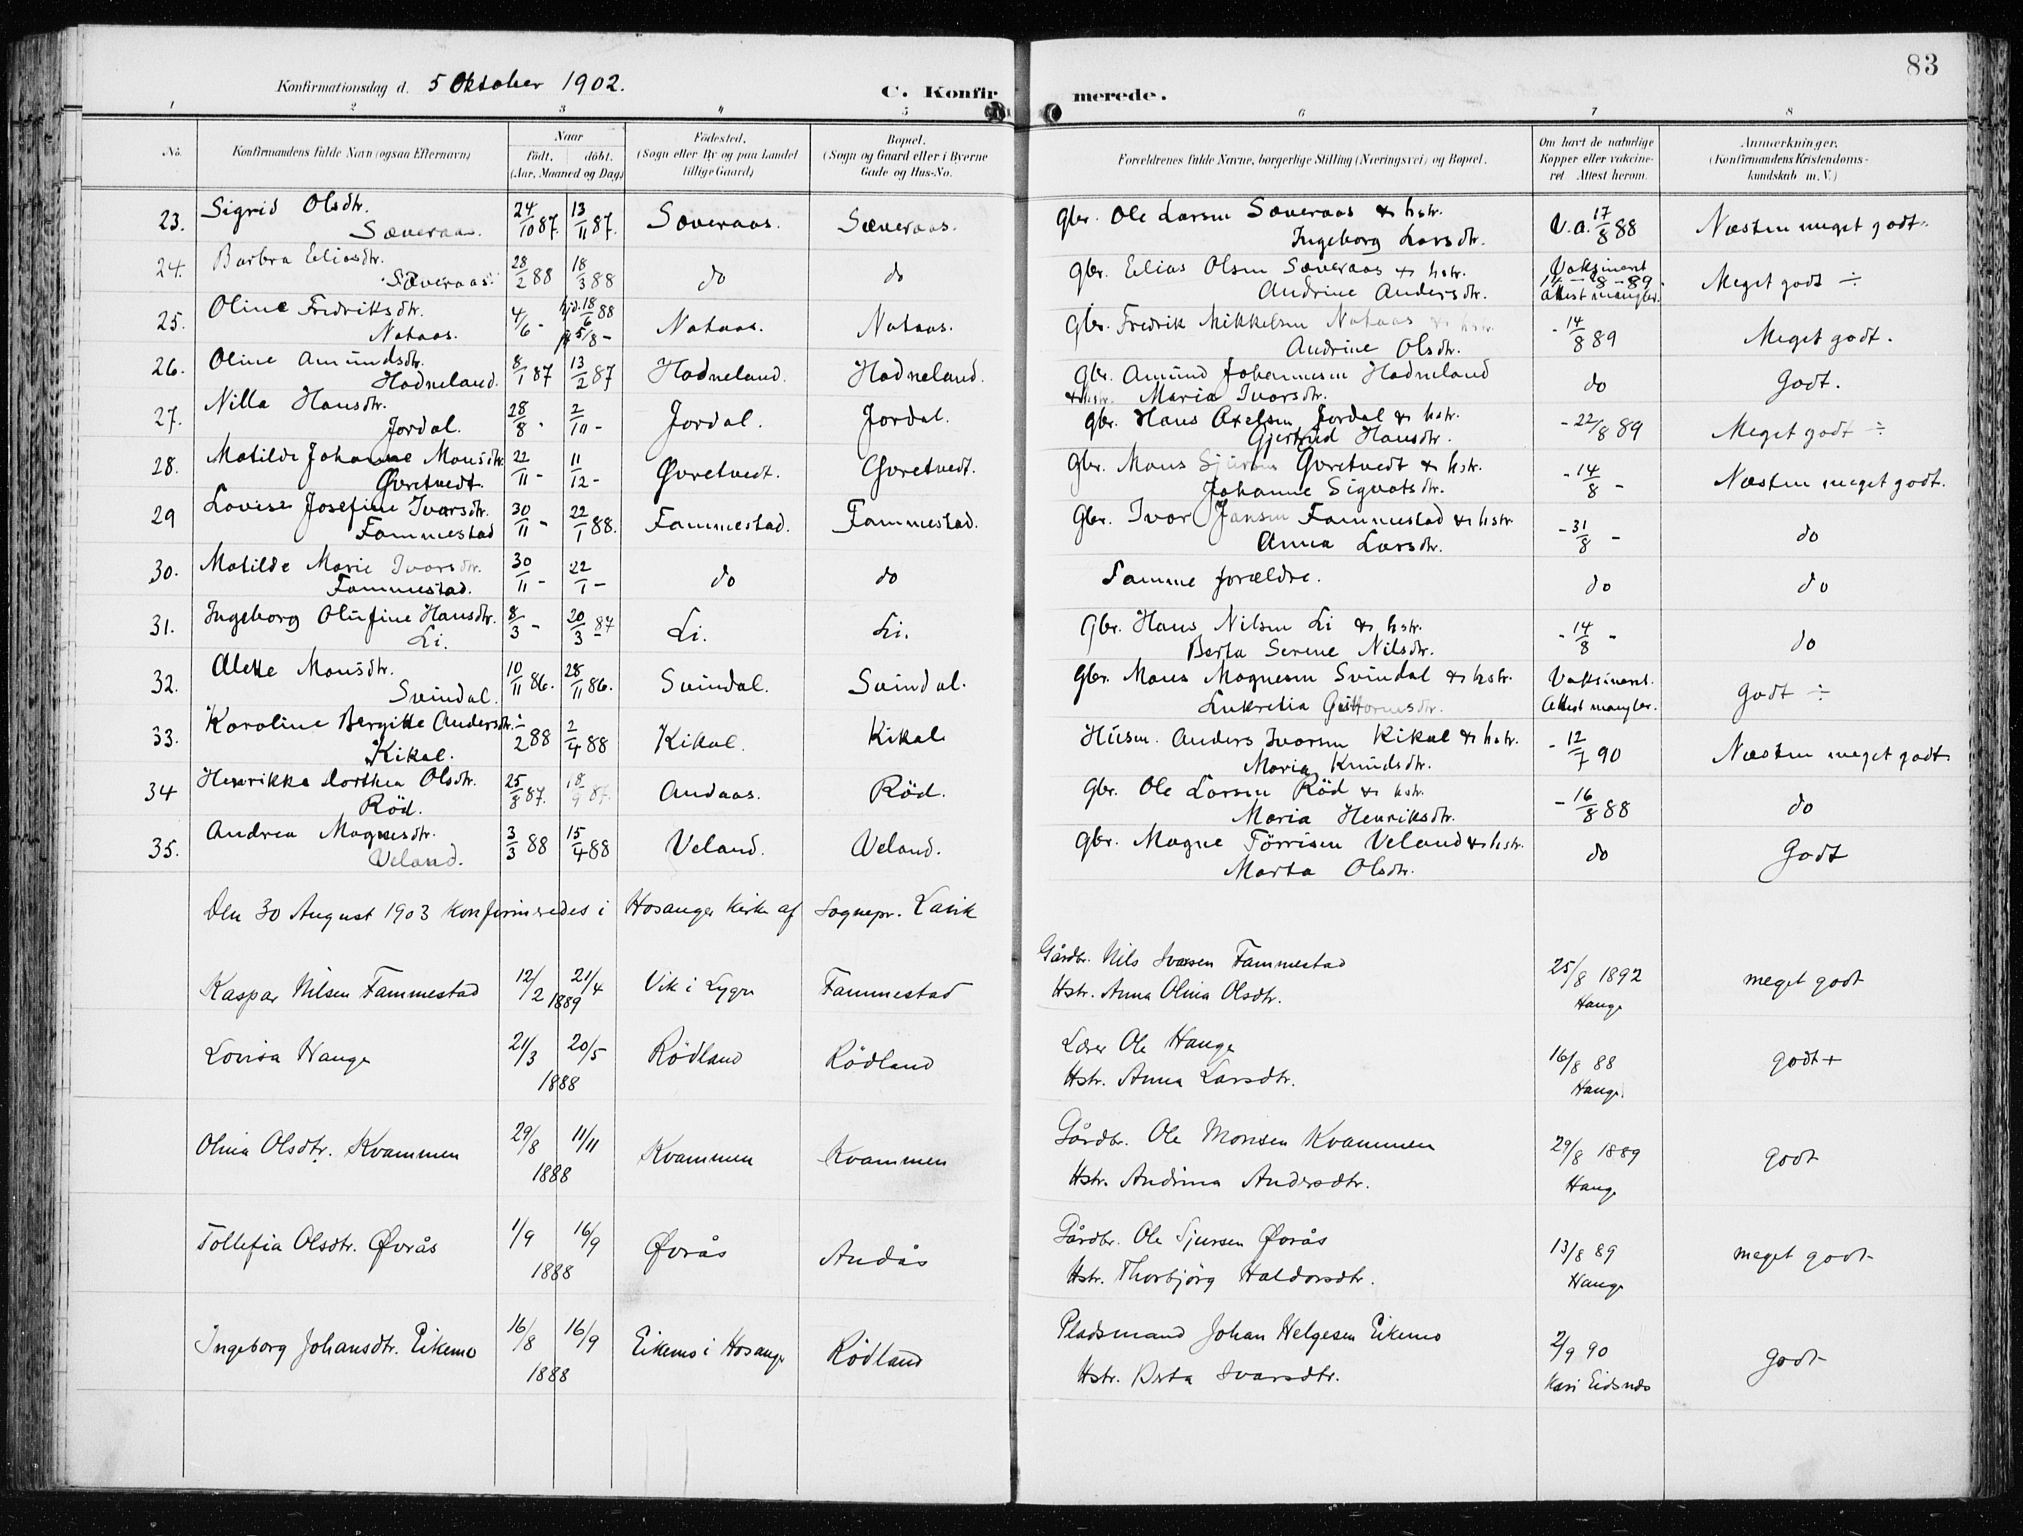 83
Konfirmationsdag d. 5 Oktober 1902.
C. Konfirmerede.
1 2 3 4 5 6 7 8
No.
Konfirmandens fulde Navn (ogsaa Efternavn)
Naar
födt. döbt.
(Aar, Maaned og Dag)
Födested.
(Sogn eller By og paa Landet
tillige Gaard)
Bopæl.
(Sogn og Gaard eller i Byerne
Gade og Hus-No.
Forældrenes fulde Navne, borgerlige Stilling (Næringsvei) og Bopæl.
Om havt de naturlige
Kopper eller vakcine-
ret Attest herom.
Anmærkninger.
(Konfirmandens Kristendoms-
kundskab m. V.)
23. Sigrid Olsdtr. 24/10 87. 13/11 87. Sæveraas. Sæveraas. Gbr. Ole Larsen Sæveraas & hstr. V.a. 17/8 88 Næsten meget godt.
Sæveraas. Ingeborg Larsdtr.
24. Barbra Eliasdtr. 28/2 88 18/3 88 do do Gbr. Elias Olsen Sæveraas & hstr. Vaksineret 14-8-89. Meget godt ÷
Sæveraas. Andrine Andersdtr. Attest mangler.
25. Oline Fredriksdtr. 4/6 - hjd. 18/6 88 Nataas. Nataas. Gbr. Fredrik Mikkelsen Nataas & hstr. - 14/8 89 Meget godt.
Nataas. 5/8 - Andrine Olsdtr.
26. Oline Amundsdtr. 8/1 87 13/2 87 Hodneland. Hodneland. Gbr. Amund Johannesen Hodneland do Godt.
Hodneland. & hstr. Maria Ivarsdtr.
27. Nilla Hansdtr. 28/8 - 2/10 - Jordal. Jordal. Gbr. Hans Axelsen Jordal & hstr. - 22/8 89 Meget godt ÷
Jordal. Gjertrud Hansdtr.
28. Matilde Johanne Monsdtr. 22/11 - 11/12 - Øvretvedt. Øvretvedt. Gbr. Mons Sjursen Øvretvedt & hstr. - 14/8 - Næsten meget godt.
Øvretvedt. Johanne Sigvatsdtr.
29 Lovise Josefine Ivarsdtr. 30/11 - 22/1 88. Fammestad. Fammestad. Gbr. Ivar Jansen Fammestad & hstr - 31/8 - do
Fammestad Anna Larsdtr.
30. Matilde Marie Ivarsdtr. 30/11 - 22/1 - do do Samme forældre. do do
Fammestad.
31. Ingeborg Olufine Hansdtr. 8/3 - 20/3 87 Li. Li. Gbr. Hans Nilsen Li & hstr. - 14/8 - do
Li. Berta Serene Nilsdtr.
32. Alette Monsdtr. 10/11 86. 28/11 86. Svindal. Svindal. Gbr. Mons Magnesen Svindal & hstr. Vaksineret. Godt ÷
Svindal. Lukretia Guttormsdtr. Attest mangler.
33. Karoline Bergitte Andersdtr. /2 88 2/4 88 Kikal. Kikal Husm. Anders Ivarsen Kikal & hstr. - 12/7 90 Næsten meget godt
Kikal. Maria Knudsdtr.
34 Henrikka Dorthea Olsdtr. 25/8 87. 18/9 87. Andaas. Röd. Gbr. Ole Larsen Röd & hstr. - 16/8 88 do
Röd. Maria Henriksdtr.
35. Andrea Magnesdtr. 3/3 88 15/4 88 Veland. Veland. Gbr. Magne Törrisen Veland & hstr. do Godt
Veland. Marta Olsdtr.
Den 30 August 1903 konfirmeredes i Hosanger kirke af Sognepr. Lavik
Gårdbr. Nils Ivarsen Fammestad
Kaspar Nilsen Fammestad 12/2 21/4 1889 Vik i Lygre Fammestad Hstr. Anna Olina Olsdtr. 25/8 1892 Hauge meget godt
Lovisa Hauge 21/3 20/5 1888 Rödland Rödland Lærer Ole Hauge 16/8 88 godt +
Hstr. Anna Larsdtr. Hauge.
Olina Olsdtr. Kvammen 29/8 11/11 1888 Kvammen Kvammen Gårdbr. Ole Monsen Kvammen 29/8 1889 godt
Hstr. Andrina Andersdtr. Hauge
Tollefia Olsdtr. Øvrås 1/9 16/9 1888 Øvrås Andås Gårdbr. Ole Sjursen Øvrås 13/8 89 meget godt
Hstr. Thorbjörg Haldorsdtr. Hauge
Ingeborg Johansdtr. Eikemo 16/8 16/9 1888 Eikemo i Hosanger Rödland Pladsmand Johan Helgesen Eikemo 2/9 90 godt
Hstr. Brta Ivarsdtr. Kari Eidsnes